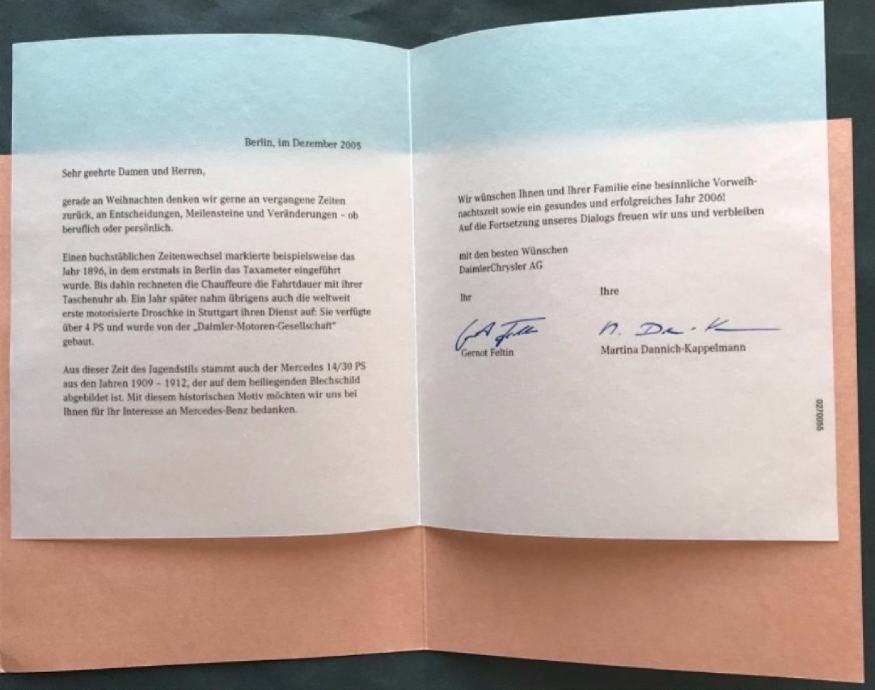 Berlin, im Dezember 2005
Sehr geehrte Damen und Herren,
gerade an Weihnachten denken wir gerne an vergangene Zeiten
zurück, an Entscheidungen, Meilensteine und Veränderungen – ob
beruflich oder persönlich.
Einen buchstäblichen Zeitenwechsel markierte beispielsweise das
Jahr 1896, in dem erstmals in Berlin das Taxameter eingeführt
wurde. Bis dahin rechneten die Chauffeure die Fahrtdauer mit ihrer
Taschenuhr ab. Ein Jahr später nahm übrigens auch die weltweit
erste motorisierte Droschke in Stuttgart ihren Dienst auf: Sie verfügte
über 4 PS und wurde von der „Daimler-Motoren-Gesellschaft“
gebaut.
Aus dieser Zeit des Jugendstils stammt auch der Mercedes 14/30 PS
aus den Jahren 1909 – 1912, der auf dem beiliegenden Blechschild
abgebildet ist. Mit diesem historischen Motiv möchten wir uns bei
Ihnen für Ihr Interesse an Mercedes-Benz bedanken.
Wir wünschen Ihnen und Ihrer Familie eine besinnliche Vorweih-
nachtszeit sowie ein gesundes und erfolgreiches Jahr 2006!
Auf die Fortsetzung unseres Dialogs freuen wir uns und verbleiben
mit den besten Wünschen
DaimlerChrysler AG
Ihr
Ihre
Gernot Feltin
Martina Dannich-Kappelmann